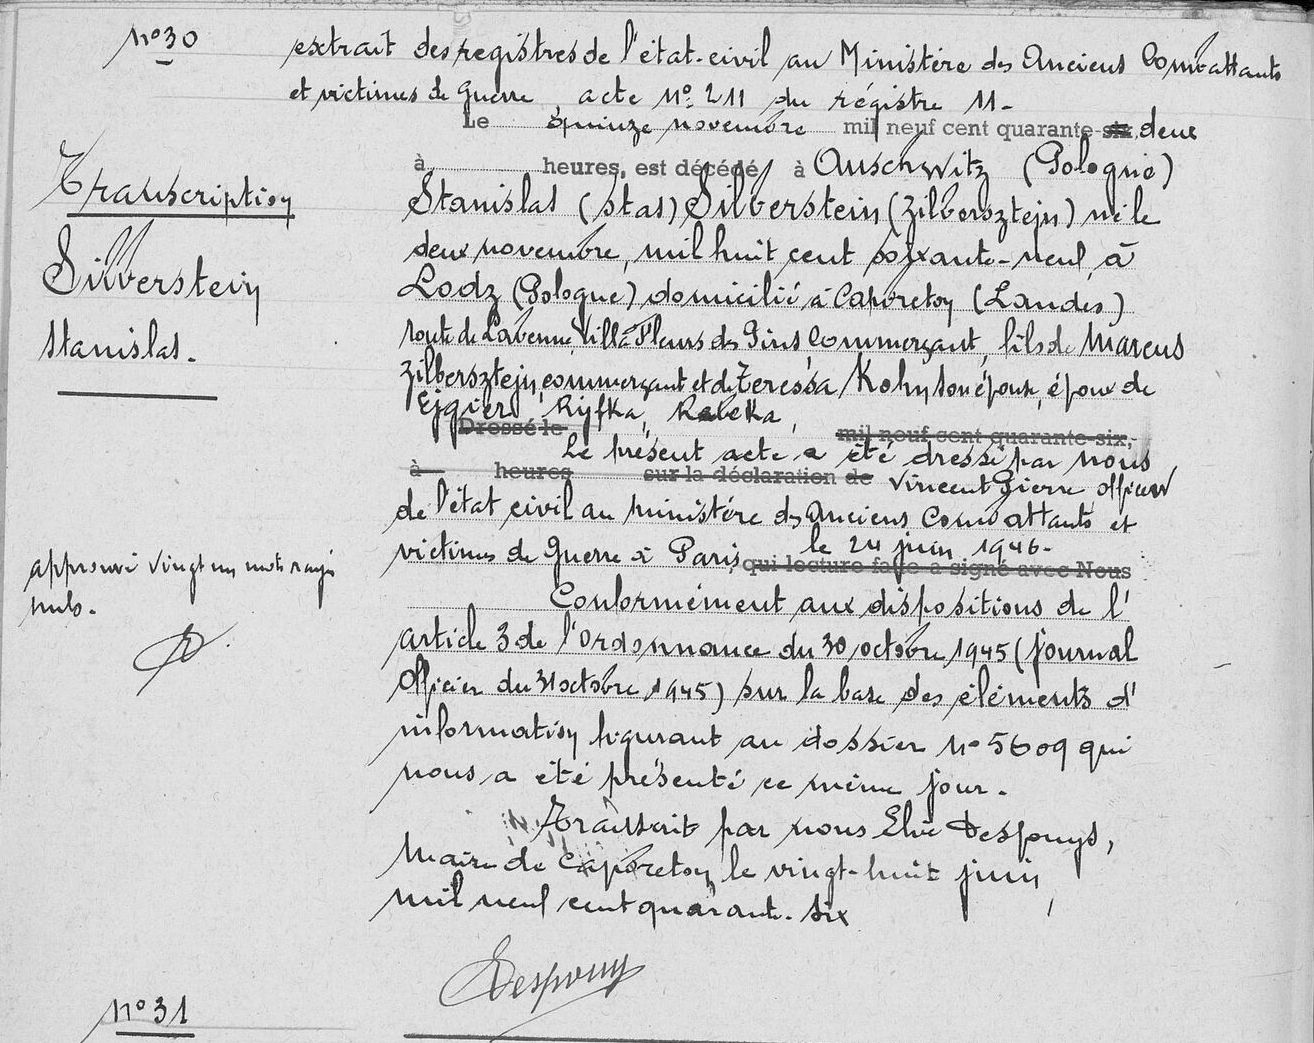 N° 30
extrait des registres de l'état-civil au Ministère des Anciens Combattants
et victimes de Guerre, acte N° 211 du régistre 11-
Le quinze novembre mil neuf cent quarante-six deux
à heures, est décédé à Auschwitz (Pologne)
Transcription
Stanislas (Stas) Silberstein (Zilbersztejn) né le
deux novembre, mil huit cent soixante-neuf, à
Silverstein
Lodz (Pologne) domicilié à Capbreton (Landes)
Stanislas.
route de Labenne, Villa Fleurs des Pins, Commerçant, fils de Marcus
Zilbersztejn, commerçant et de Teressa Kohn son épouse, époux de
Ejgier Ryfka, Rebeka,
Dressé le mil neuf cent quarante-six,
Le présent acte a été dressé par nous
à heures sur la déclaration de Vincent Pierre officier
de l'état civil au ministère des Anciens Combattants et
le 24 juin 1946-
victimes de Guerre à Paris, qui lecture faite a signé avec Nous
approuvé vingt un mots rayés
nuls.
Conformément aux dispositions de l'
article 3 de l'Ordonnance du 30 octobre 1945 (journal
Officier du 31 octobre 1945) sur la base des éléments d'
information figurant au dossier N° 5609 qui
nous a été présenté ce même jour.
Transcrit par nous Elie Despouys,
Maire de Capbreton, le vingt-huit juin,
mil neuf cent quarante-six
Despouys
N° 31